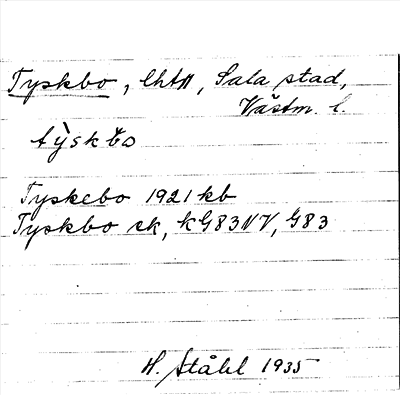 Tyskbo, lht, Sala stad,
Västm. l.
týskbo
Tyskebo 1921 kb
Tyskbo ek, kG83NV, G83
H. Ståhl 1935